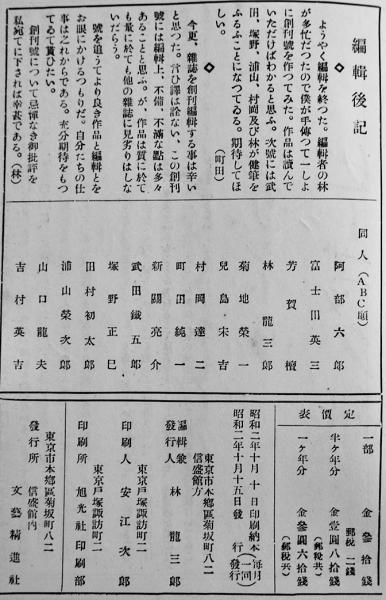 編輯後記
◇
ようやく編輯を終つた。編輯者の林
が多忙だつたので僕が手傳つて一しよ
に創刊號を作つてみた。作品は讀んで
いただけばわかると思ふ。次號には武
田、塚野、浦山、村岡及び林が健筆を
ふるふことになつてゐる。期待してほ
しい。
（町田）
◇
今更、雜誌を創刊編輯する事は辛い
と思つた。言ひ譯は詮ない、この創刊
號には編輯上、不備、不滿な點は多々
あることと思ふ。が、作品は質に於て
も量に於ても他の雜誌に見劣りはしな
いだらう。
號を追うてより良き作品と編輯とを
お眼にかけるつもりだ。自分たちの仕
事はこれからである。充分期待をもつ
てゐて貰ひたい。
創刊號について忌憚なき御批評を
私宛てに下されば幸甚である。（林）
同人（ABC順）
阿部六郎
富士田英三
芳賀檀
林龍三郎
菊地榮一
兒島宋吉
村岡達二
町田純一
新關亮介
武田鐵五郎
塚野正巳
田村初太郎
浦山榮次郎
山口龍夫
吉村英吉
定價表
一部 金參拾錢 郵稅二錢
半ケ年分 金壹圓八拾錢（郵稅共）
一ケ年分 金參圓六拾錢（郵稅共）
昭和二年十月十日印刷納本（毎月一回發行）
昭和二年十月十五日發行
東京市本鄕區菊坂町八二
信盛館方
編輯兼
發行人 林龍三郎
東京戸塚諏訪町二
印刷人 安江次郎
東京戸塚諏訪町二
印刷所 旭光社印刷部
東京市本鄕區菊坂町八二
信盛館内
發行所 文藝精進社